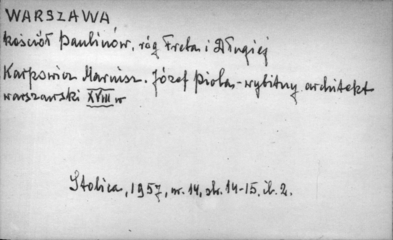 WARSZAWA
kościół Paulinów, róg Freta i Długiej
Karpowicz Mariusz. Józef Piola - wybitny architekt
warszawski XVIII w
Stolica, 1957, nr. 14, str. 14-15, il. 2.